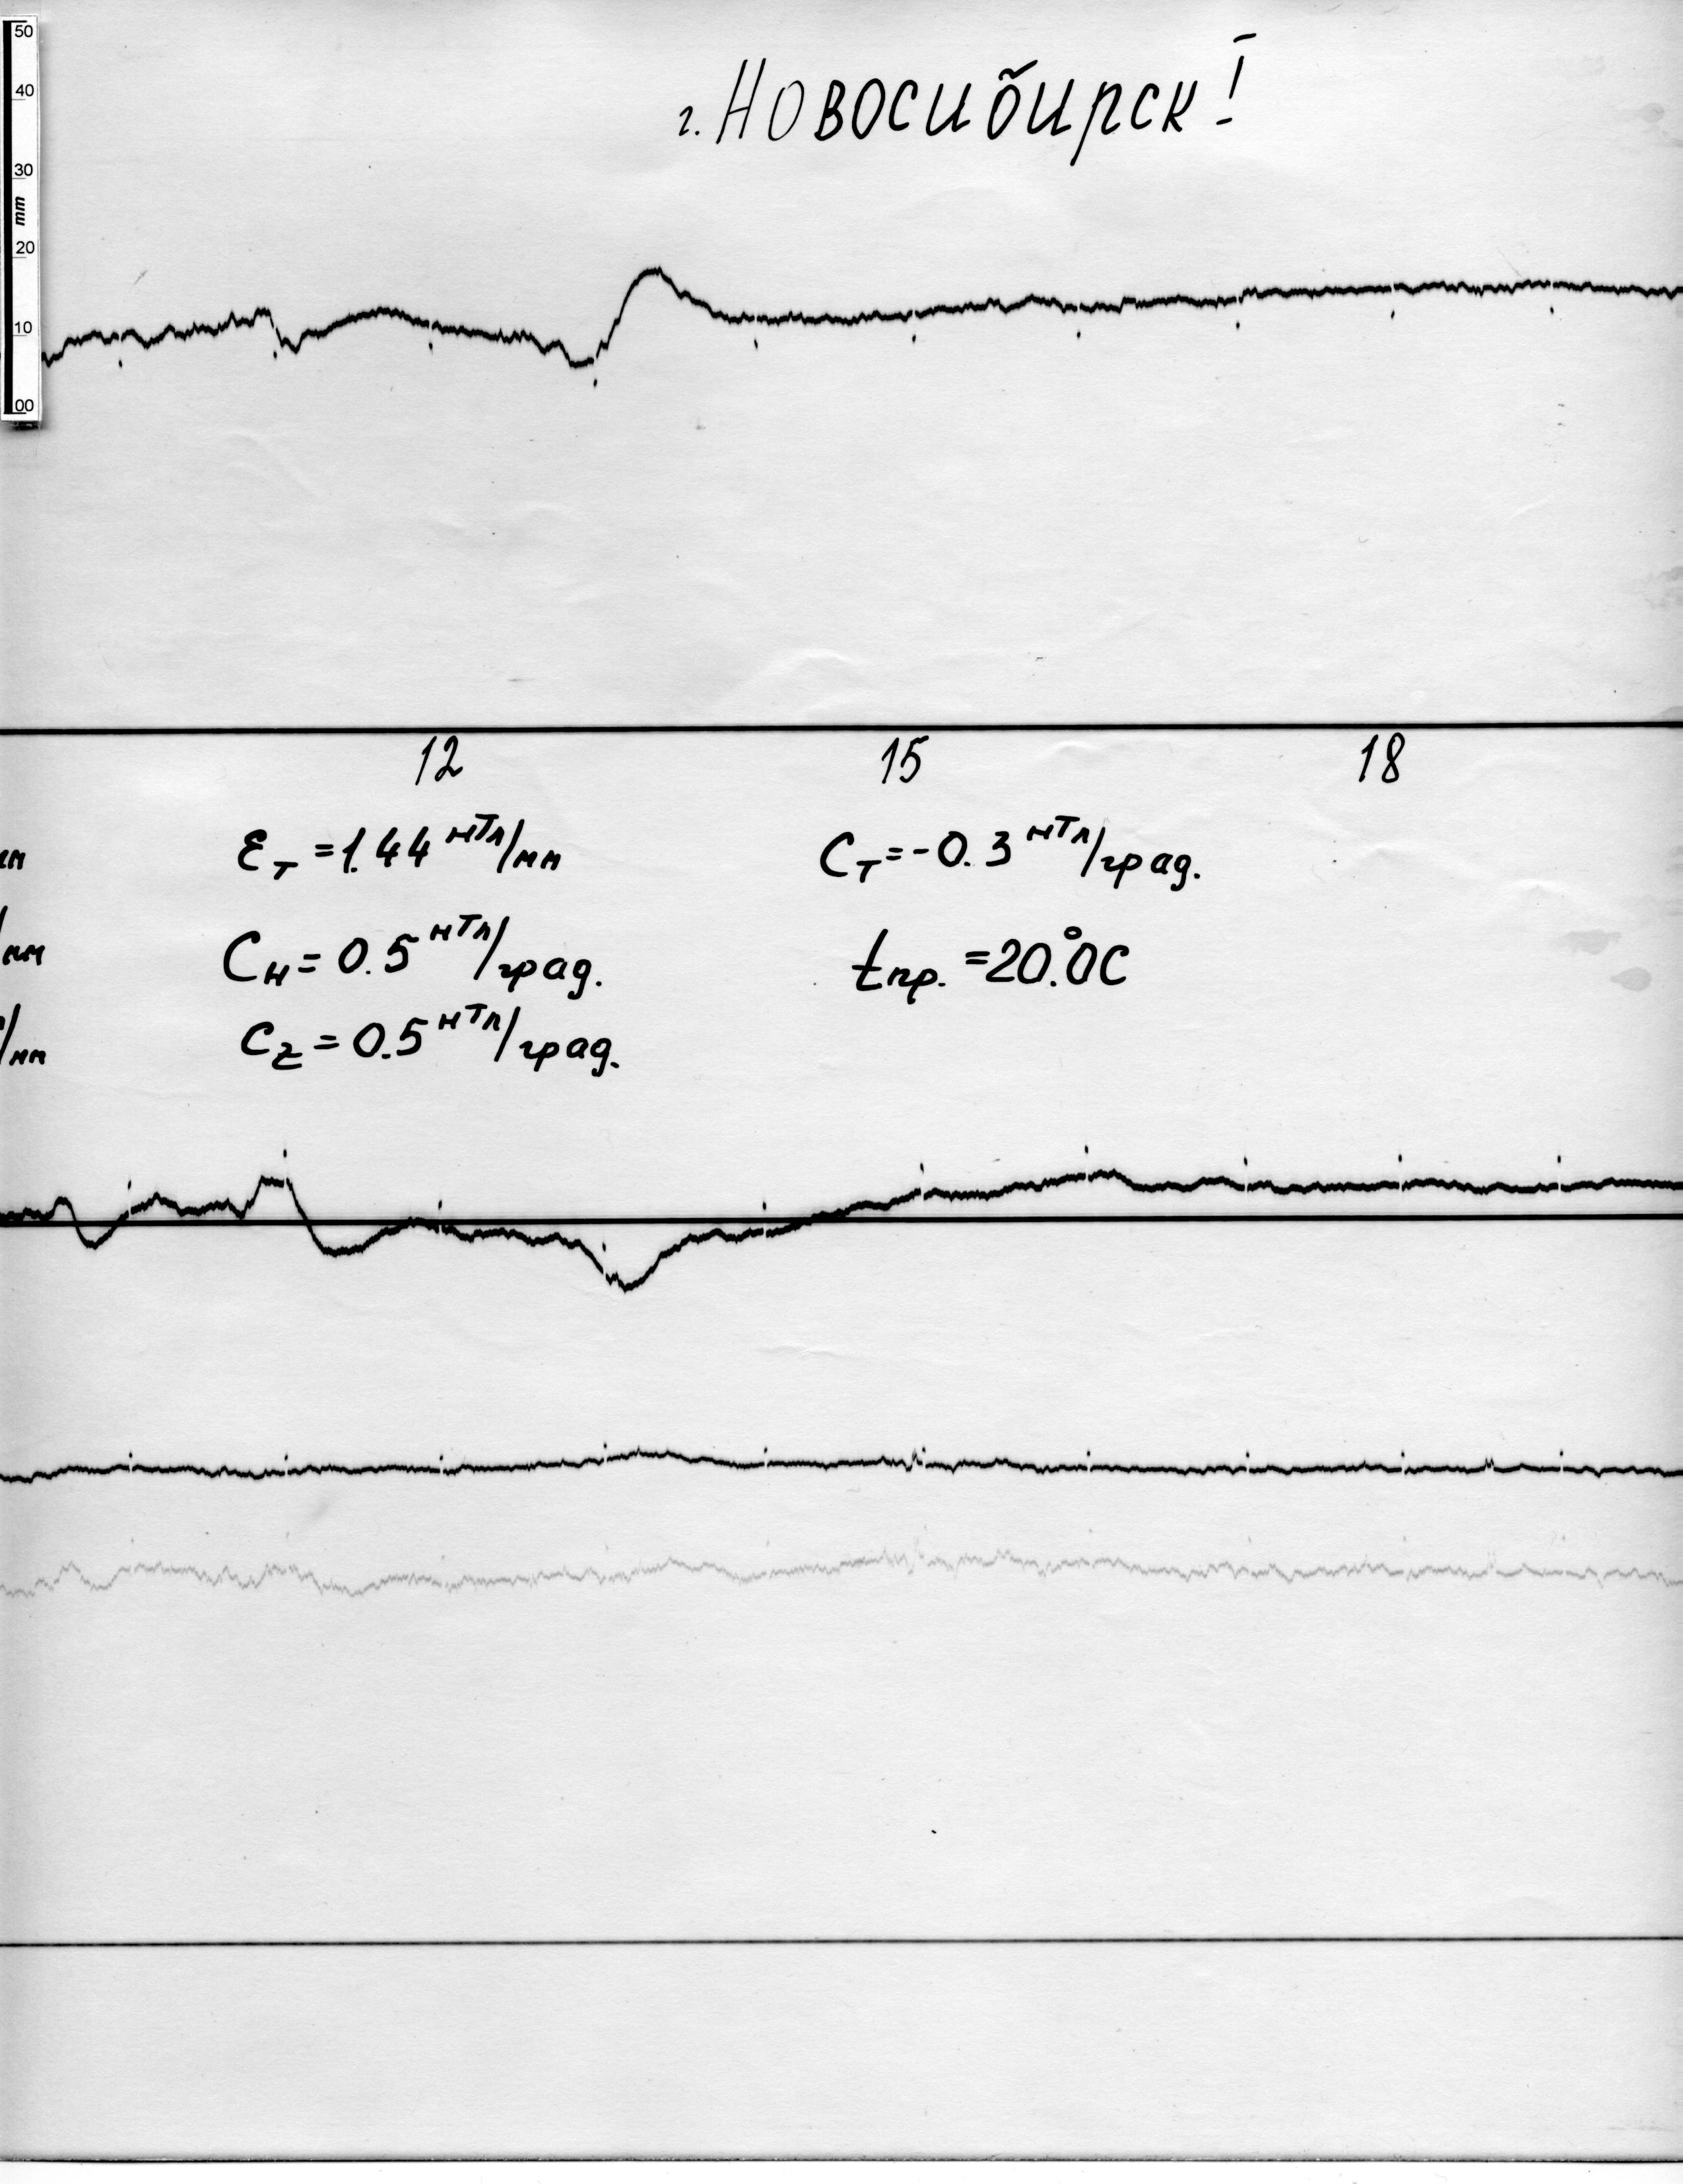 50
40
30
mm
20
10
00
г. Новосибирск I
12 15 18
мм
Ɛт = 1.44 нТл/мм Cт = -0.3 нТл/град.
/мм
Cн = 0.5 нТл/град. tпр. = 20.°0C
/мм
Cz = 0.5 нТл/град.